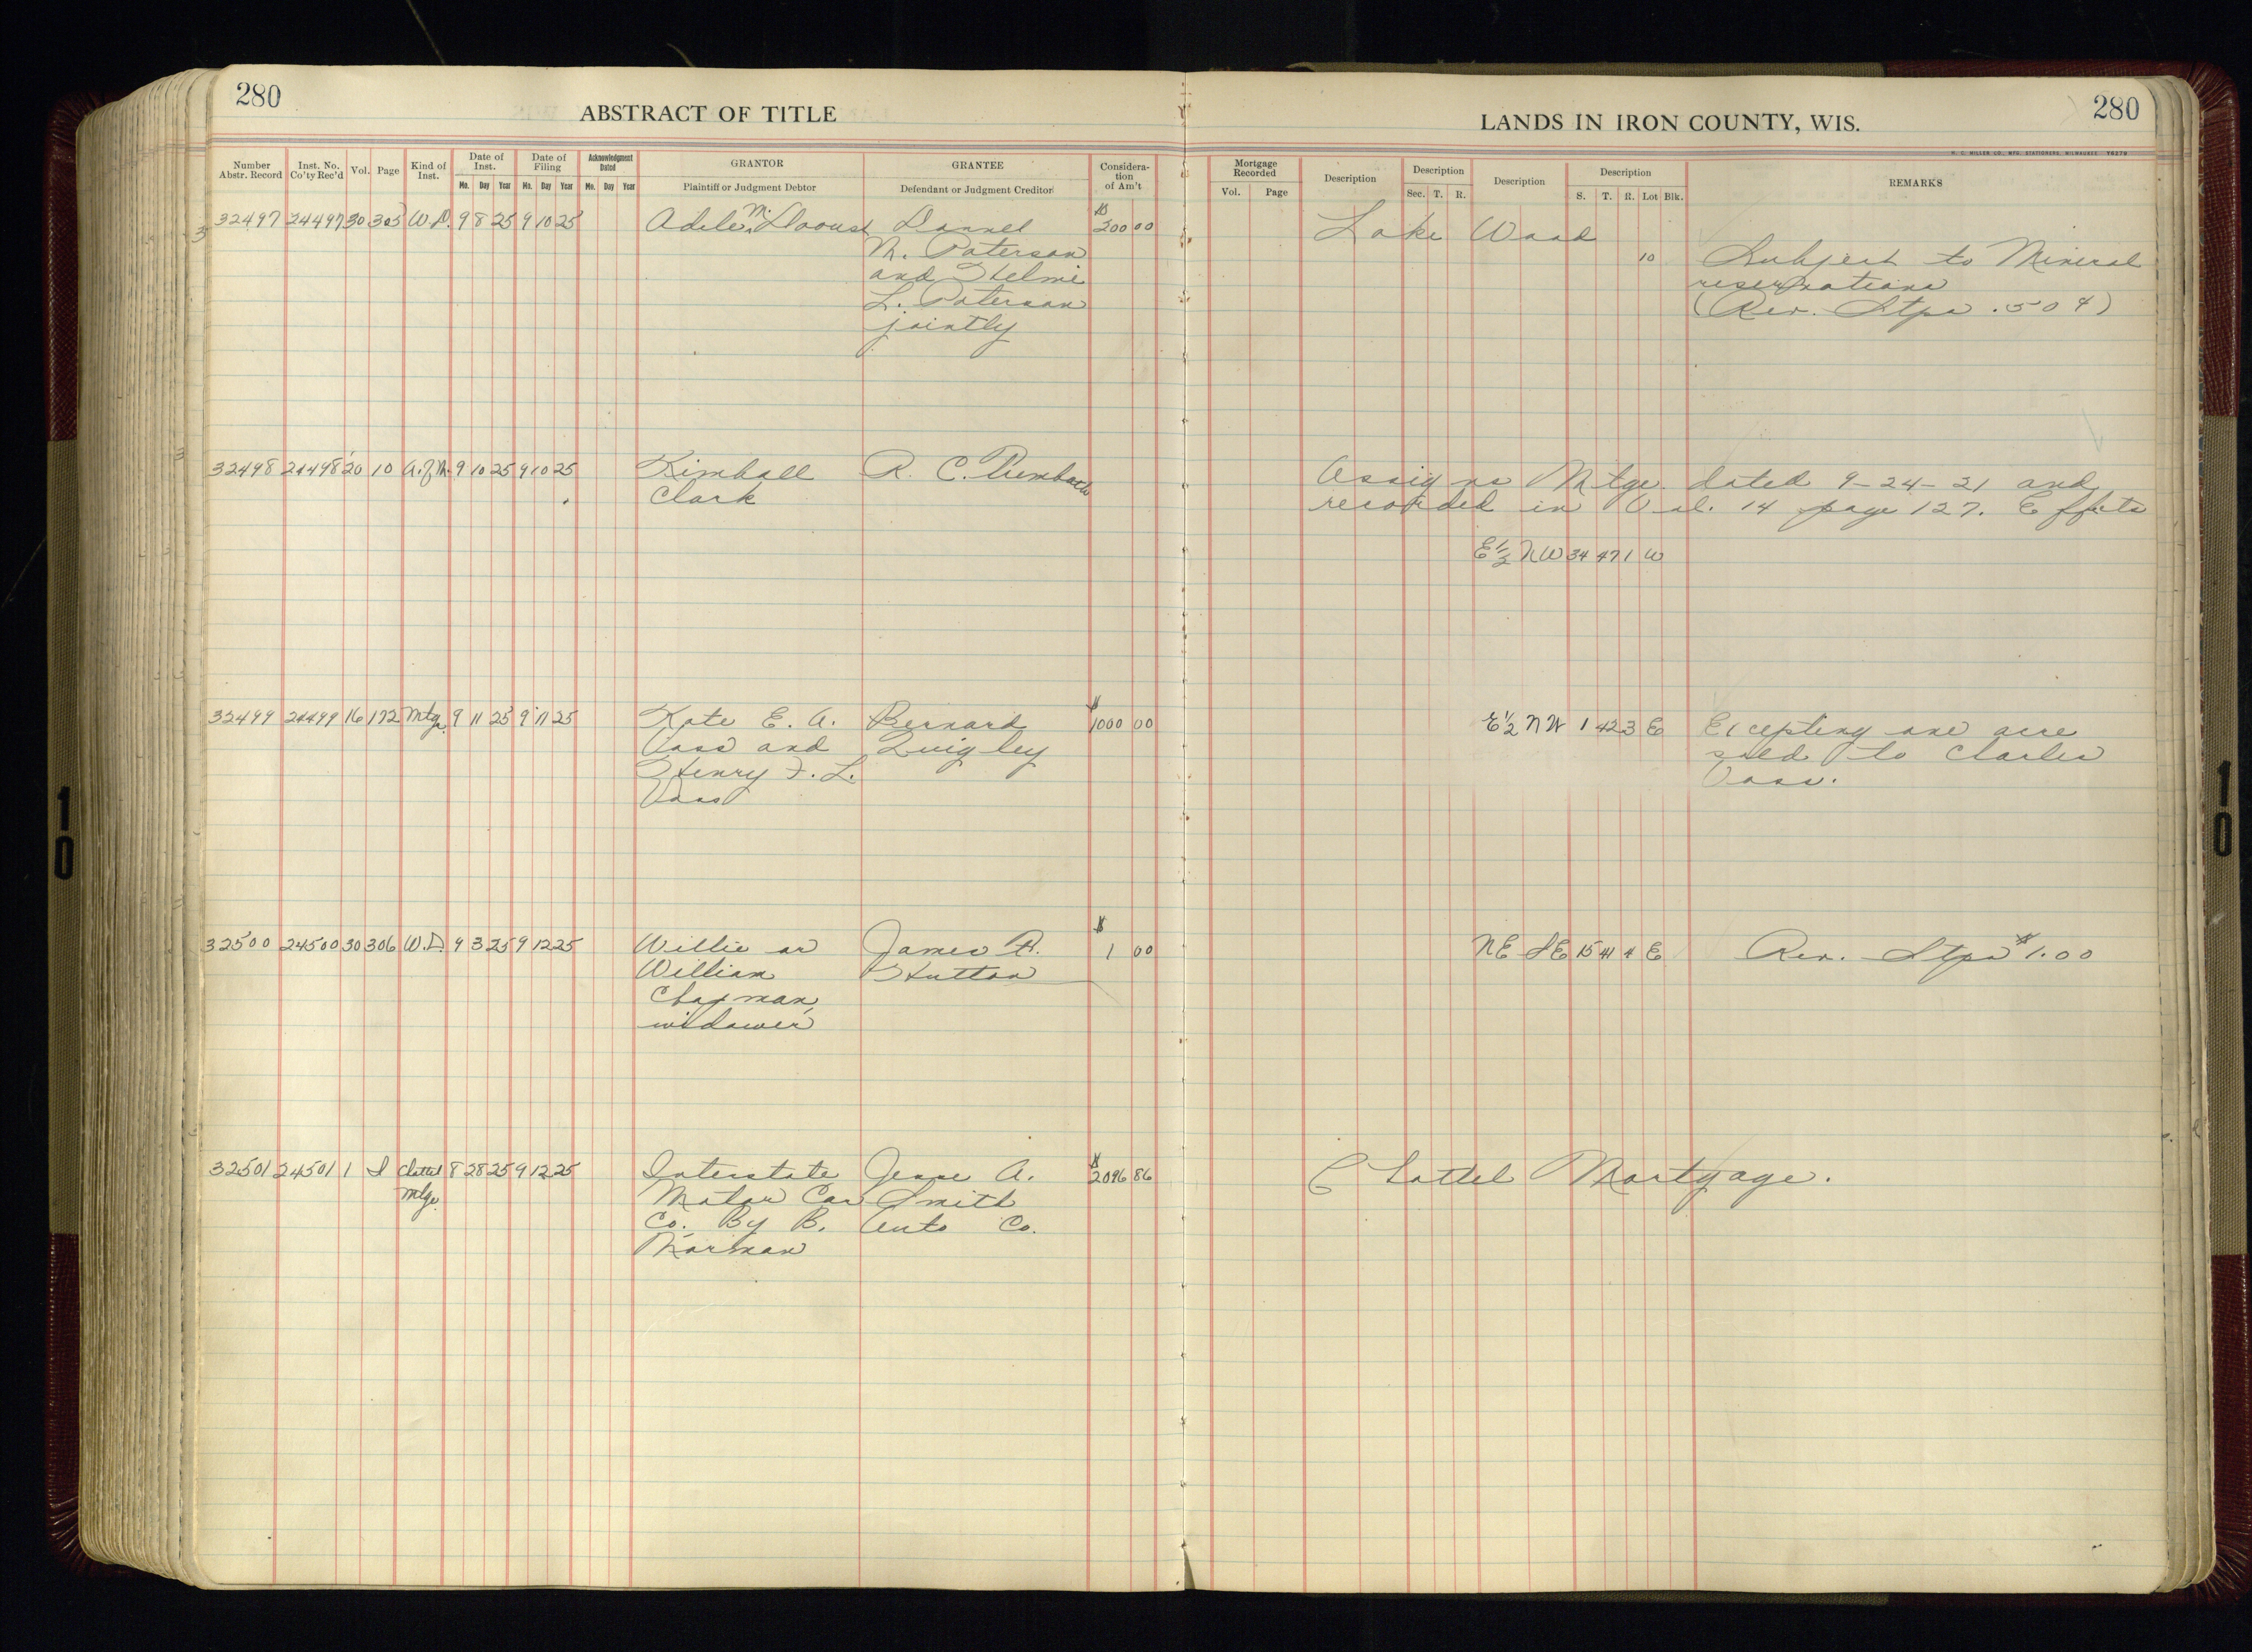 280
ABSTRACT OF TITLE
LANDS IN IRON COUNTY, WIS.
280
H. C. MILLER CO., MFG. STATIONERS, MILWAUKEE
Number Abstr. Record Inst. No. Co'ty Rec'd Vol. Page Kind of Inst. Date of Inst. Date of Filing Acknowledgment Dated GRANTOR GRANTEE Consideration of Am't Mortgage Recorded Description Description Description Description REMARKS
Mo. Day Year Mo. Day Year Mo. Day Year Plaintiff or Judgment Debtor Defendant or Judgment Creditor Vol. Page Sec. T. R. S. T. R. Lot Blk.
32497 24497 30 305 W.D. 9 8 25 9 10 25 Adele M. Daoust $200 00 Lake Wood
M. Paterson 10 Subject to Mineral
and reservations
L. Paterson (Rev. Stps .50¢)
jointly
32498 24498 20 10 A. of M. 9 10 25 9 10 25 Kimball R. C. Assigns Mtge dated 9-24-21 and
Clark recorded in Vol. 14 page 127. Effects
E½ NW 34 47 1 W
32499 24499 16 172 Mtge. 9 11 25 9 11 25 Kate E. A. Bernard $1000 00 E½ NW 1 42 3 E Excepting one acre
Voss and Quigley sold to Charles
Henry F. L. Voss.
Voss
32500 24500 30 306 W.D. 9 3 25 9 12 25 Willie or James A. $1 00 NE SE 15 41 4 E Rev. Stps $1.00
William Hutton
Chapman,
widower
32501 24501 1 S Chattel 8 28 25 9 12 25 Interstate Jesse A. $2096 86 Chattel Mortgage.
Mtge. Motor Car Smith
Co. By B. Auto Co.
Morman